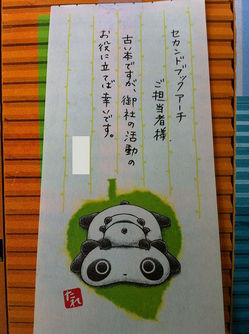 セカンドブックアーチ
ご担当者様
古い本ですが、御社の活動の
お役に立てば幸いです。
たれ